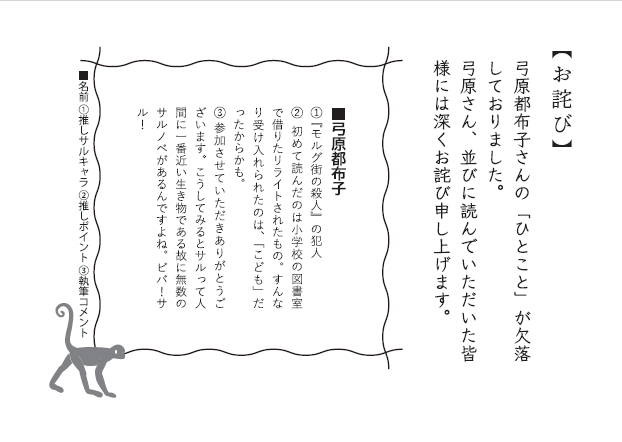 【お詫び】
弓原都布子さんの「ひとこと」が欠落
しておりました。
弓原さん、並びに読んでいただいた皆
様には深くお詫び申し上げます。
■弓原都布子
①『モルグ街の殺人』の犯人
② 初めて読んだのは小学校の図書室
で借りたリライトされたもの。すんな
り受け入れられたのは、「こども」だ
ったからかも。
③ 参加させていただきありがとうご
ざいます。こうしてみるとサルって人
間に一番近い生き物である故に無数の
サルノベがあるんですよね。ビバ！サ
ル！
■名前 ①推しサルキャラ ②推しポイント ③執筆コメント